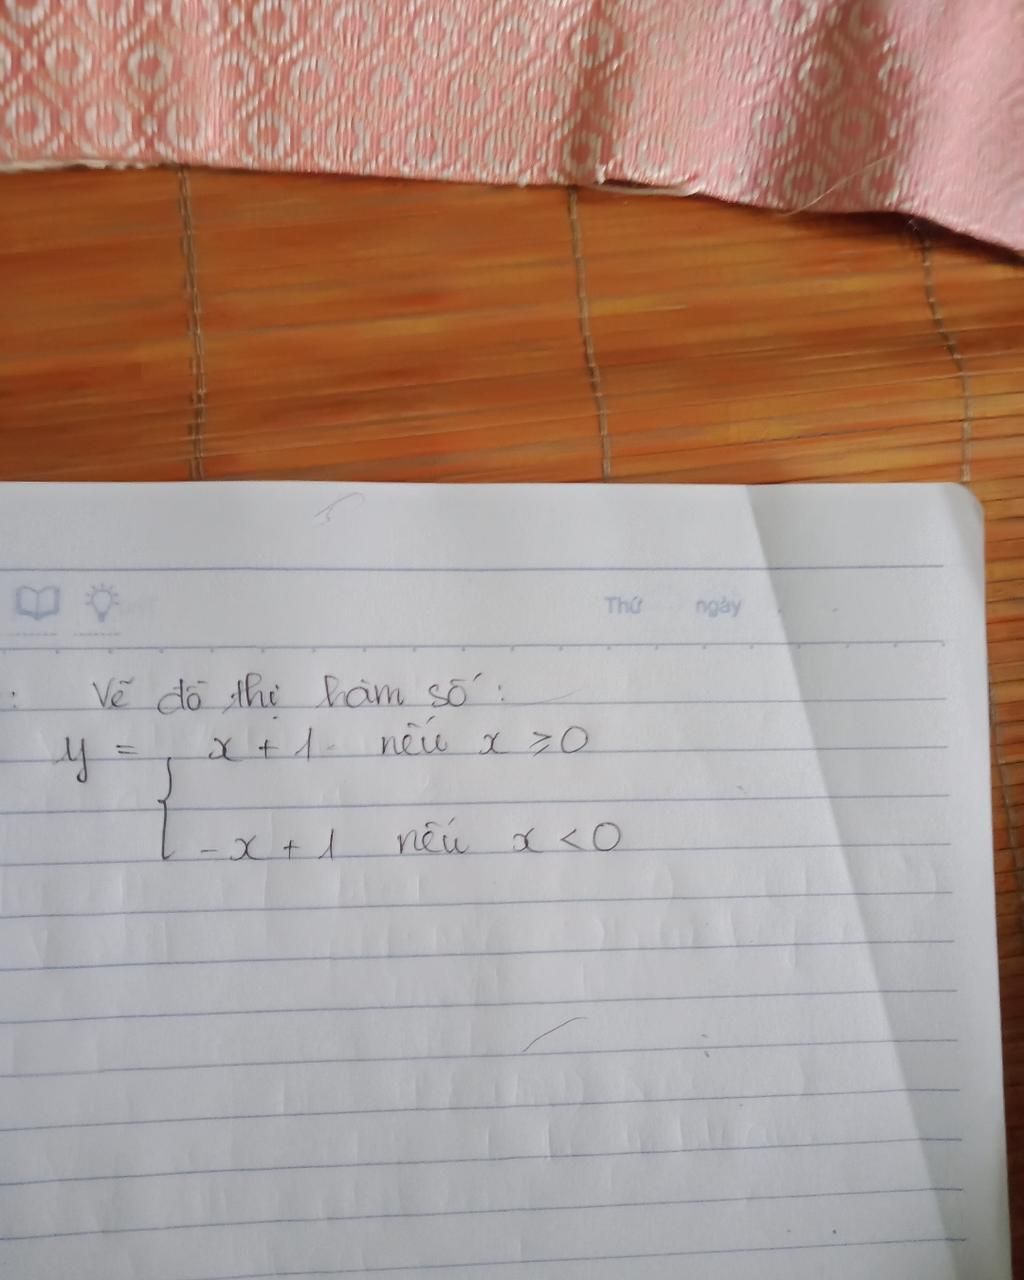 Thứ ngày
: Vẽ đồ thị hàm số :
y = { x + 1 nếu x ≥ 0
- x + 1 nếu x < 0